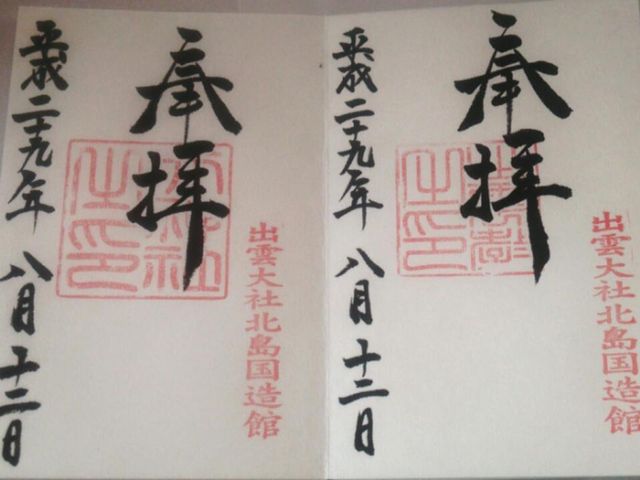 出雲大社北島国造館
奉拝
平成二十九年 八月十二日
出雲大社北島国造館
奉拝
平成二十九年 八月十二日